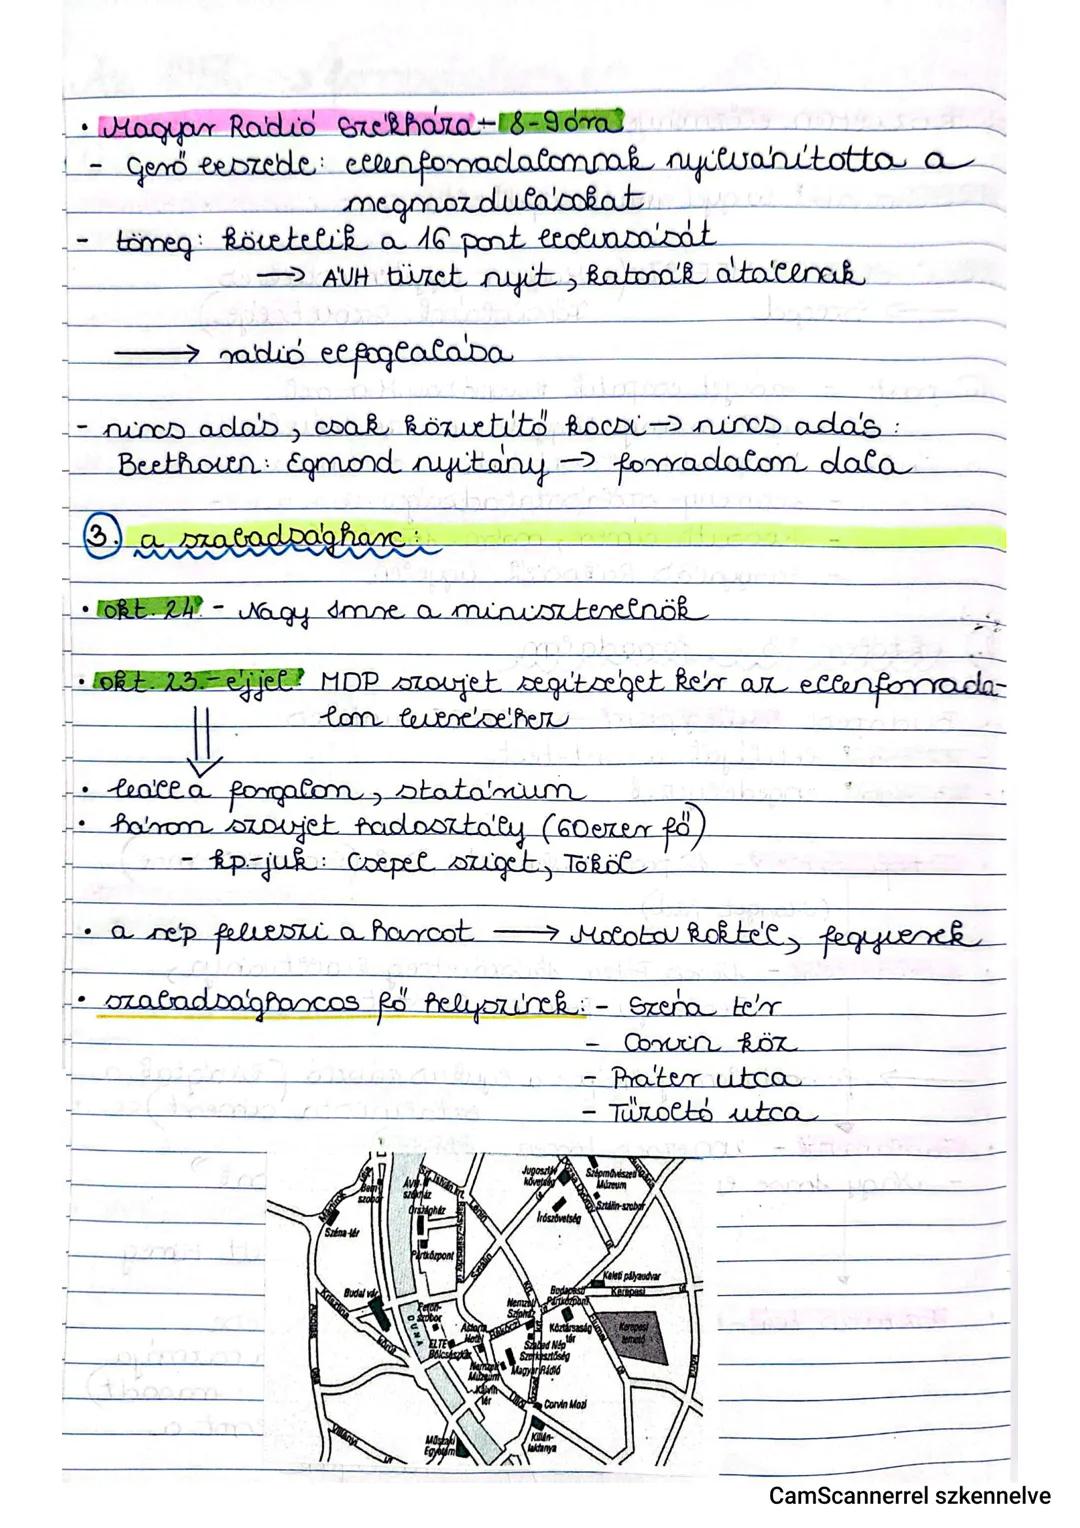 • Magyar Rádió Székháza - 8-9 óra:
- Gerő beszéde: ellenforradalomnak nyilvánította a
megmozdulásokat
- tömeg: követelik a 16 pont leolvasását
→ ÁVH tüzet nyit, katonák átállnak
→ rádió elfoglalása
- nincs adás, csak közvetítő kocsi → nincs adás:
Beethoven: Egmond nyitány → forradalom dala
3. a szabadságharc:
• okt. 24. - Nagy Imre a miniszterelnök
• okt. 23.-éjjel: MDP szovjet segítséget kér az ellenforrada-
lom leveréséhez
• leáll a forgalom, statárium
• három szovjet hadosztály (60ezer fő)
- kp.-juk: Csepel sziget, Tököl
• a nép felveszi a harcot → Molotov koktél, fegyverek
• szabadságharcos fő helyszínek: - Széna tér
- Corvin köz
- Práter utca
- Tűzoltó utca
Jugoszláv
követség
Szépművészeti
Múzeum
Sztálin-szobor
Írószövetség
Bem
szobor
ÁVH
székház
Szt. István krt.
Országház
Lenin
Széna-tér
Pártközpont
Sztálin
Keleti pályaudvar
Kerepesi
Budai vár
Krisztina
Petőfi-
szobor
DUNA
Astoria
Hotel
Rákóczi
Nemzeti
Színház
Budapesti
Pártközpont
Köztársaság
tér
Kerepesi
temető
ELTE
Bölcsészkar
Szabad Nép
Szerkesztőség
Nemzeti
Múzeum
Magyar Rádió
Kálvin
tér
Üllői
Corvin Mozi
Villányi
út
Műszaki
Egyetem
Kilián-
laktanya
CamScannerrel szkennelve